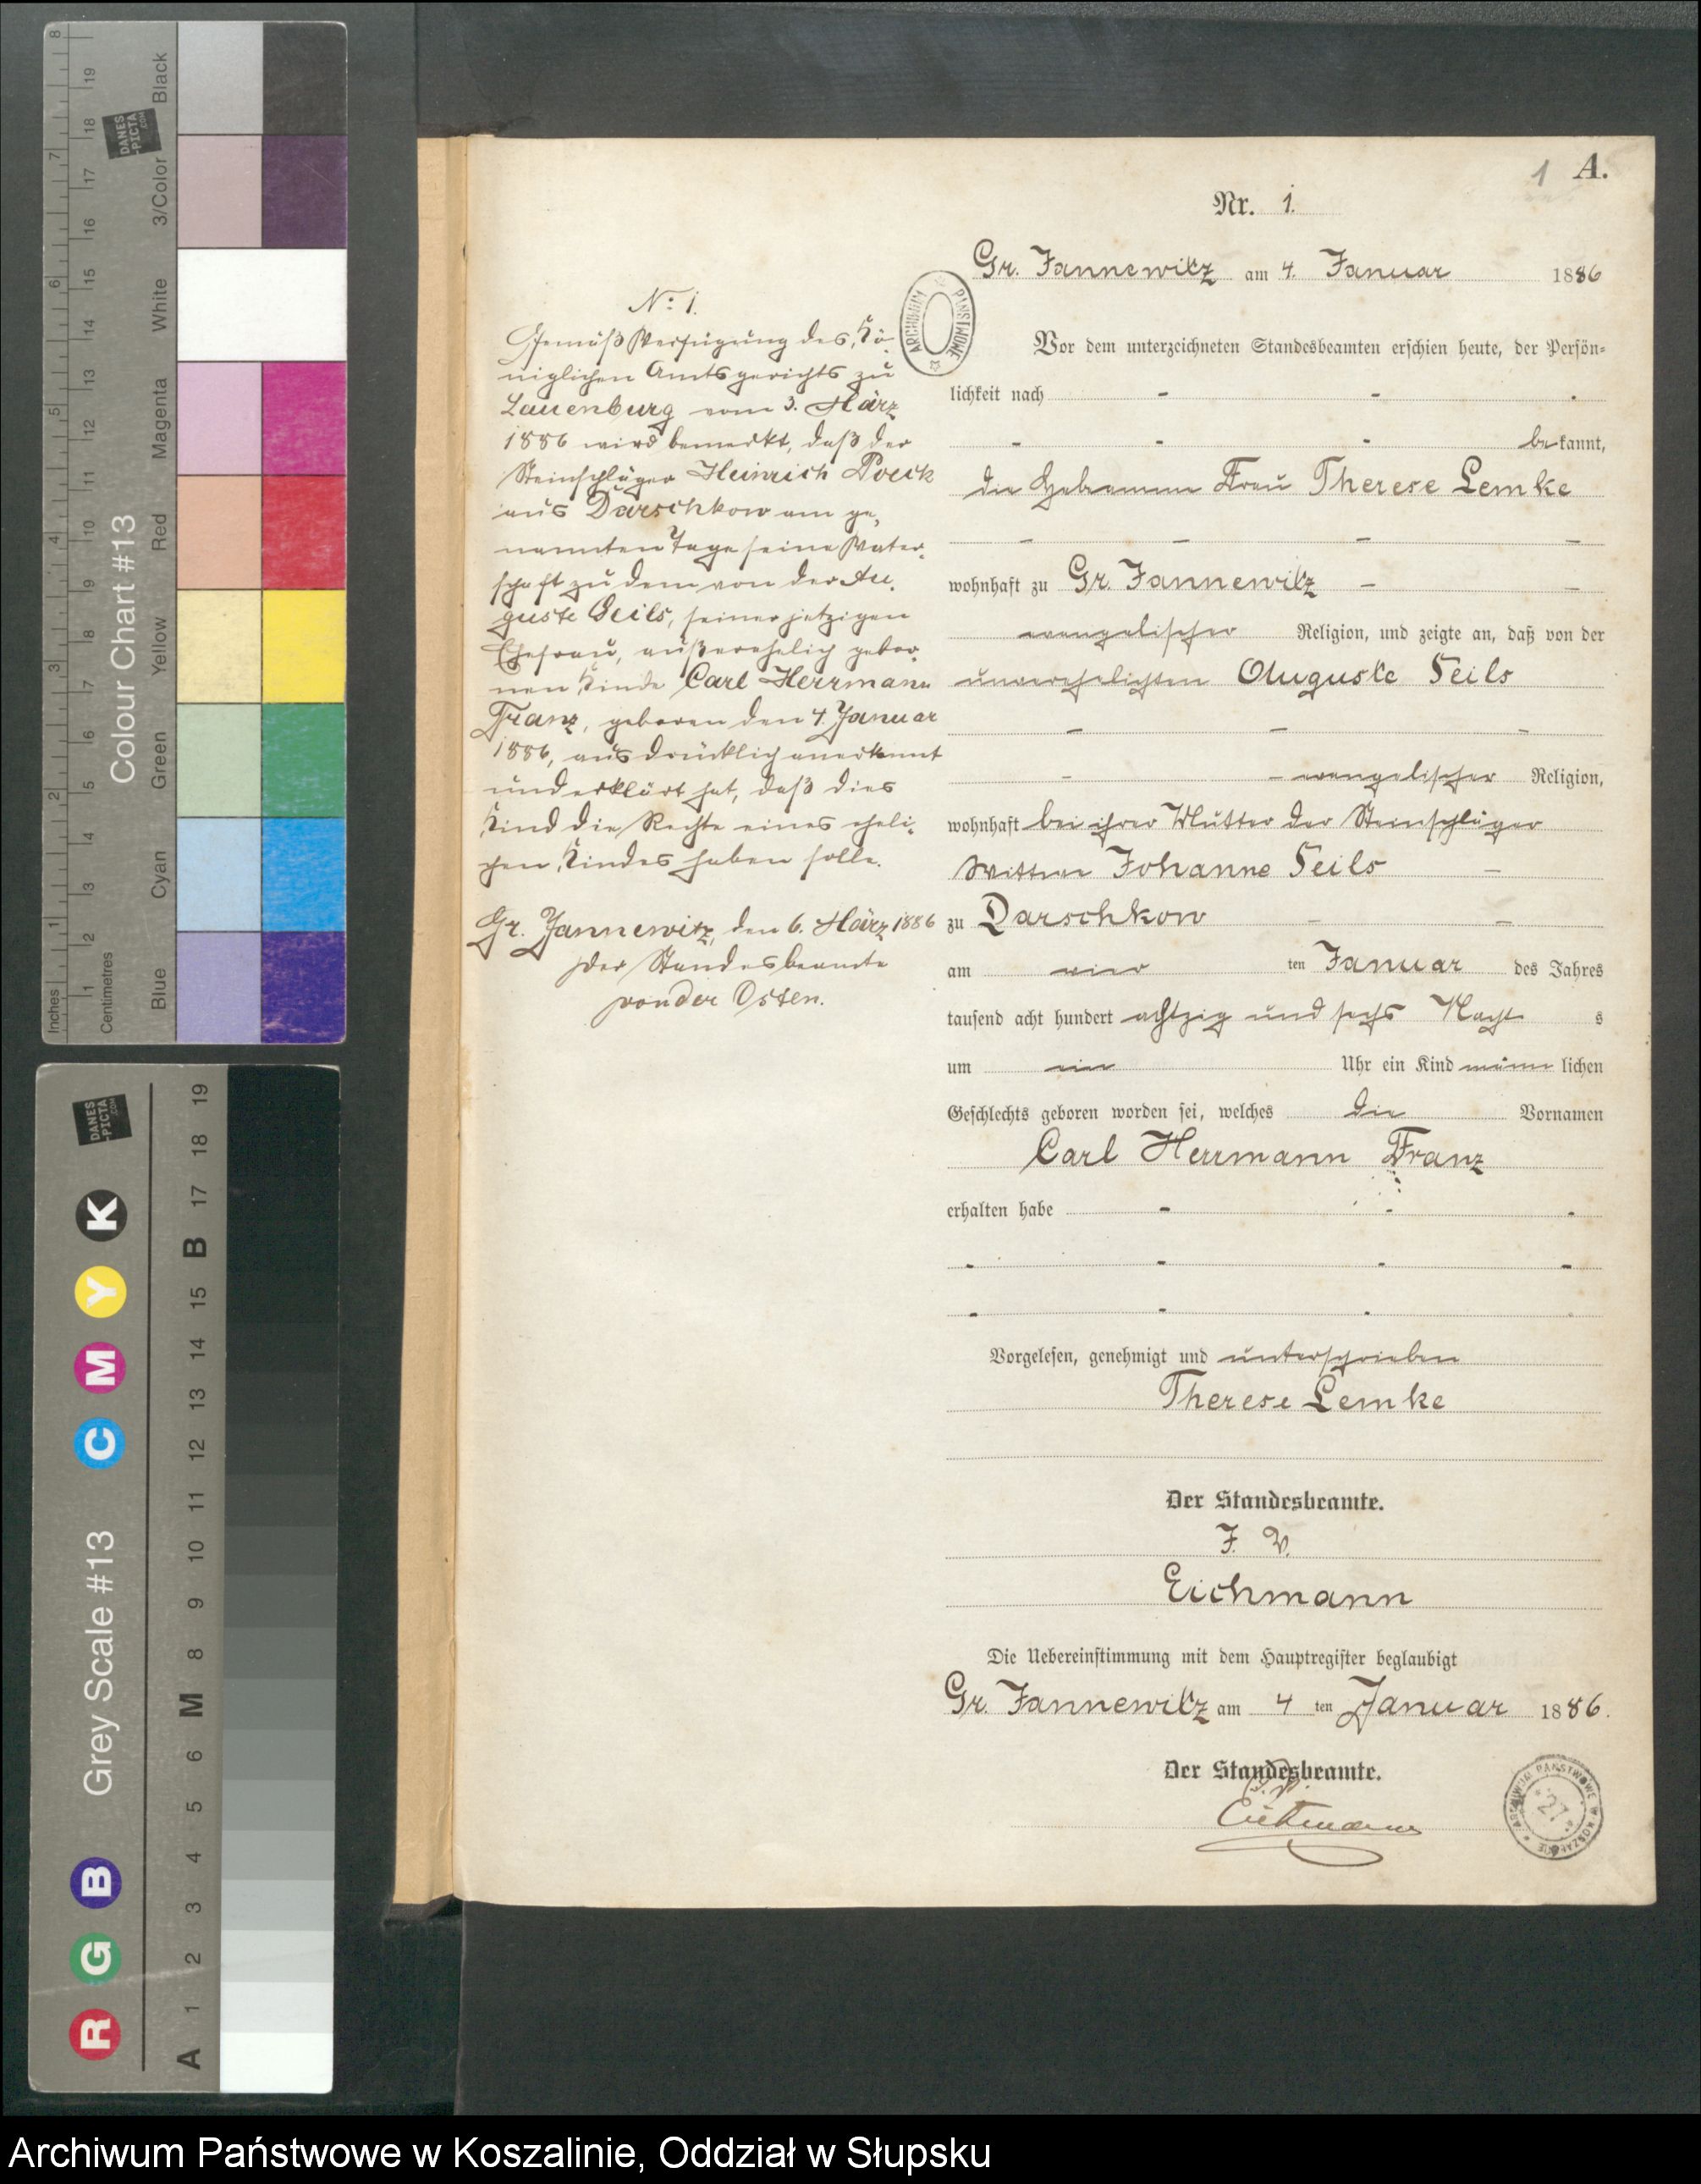 1 A.
Nr. 1.
Gr. Jannewitz am 4. Januar 1886
Vor dem unterzeichneten Standesbeamten erschien heute, der Persön=
lichkeit nach - - -
- - - bekannt,
die Hebamme Frau Therese Lemke
- - - -
wohnhaft zu Gr. Jannewitz - -
evangelischer Religion, und zeigte an, daß von der
unverehelichten Auguste Seils
- - -
- - evangelischer Religion,
wohnhaft bei ihrer Mutter der Steinschläger
Wittwe Johanne Seils -
zu Darschkow - -
am vier ten Januar des Jahres
tausend acht hundert achtzig und sechs Nacht s
um ein Uhr ein Kind männlichen
Geschlechts geboren worden sei, welches die Vornamen
Carl Herrmann Franz
erhalten habe - - -
- - - -
- - - -
Vorgelesen, genehmigt und unterschrieben
Therese Lemke
Der Standesbeamte.
J. V.
Eichmann
Die Uebereinstimmung mit dem Hauptregister beglaubigt
Gr. Jannewitz am 4 ten Januar 1886.
Der Standesbeamte.
J. V.
Eichmann
No: 1.
Gemäß Verfügung des Kö-
niglichen Amtsgerichts zu
Lauenburg vom 3. März
1886 wird bemerkt, daß der
Steinschläger Heinrich Poeck
aus Darschkow am ge-
nannten Tage seine Vater-
schaft zu dem von der Au-
guste Seils, seiner jetzigen
Ehefrau, außerehelich gebor-
nen Kinde Carl Herrmann
Franz, geboren den 4. Januar
1886, ausdrücklich anerkannt
und erklärt hat, daß dies
Kind die Rechte eines eheli-
chen Kindes haben solle.
Gr. Jannewitz, den 6. März 1886
Der Standesbeamte
von der Osten.
ARCHIWUM PAŃSTWOWE
ARCHIWUM PAŃSTWOWE W KOSZALINIE
27
Colour Chart #13
Inches 1 2 3 4 5 6 7 8
Centimetres 1 2 3 4 5 6 7 8 9 10 11 12 13 14 15 16 17 18 19
Blue Cyan Green Yellow Red Magenta White 3/Color Black
DANES
-PICTA
.COM
Grey Scale #13
R G B C M Y K
A 1 2 3 4 5 6 M 8 9 10 11 12 13 14 15 B 17 18 19
DANES
-PICTA
.COM
Archiwum Państwowe w Koszalinie, Oddział w Słupsku